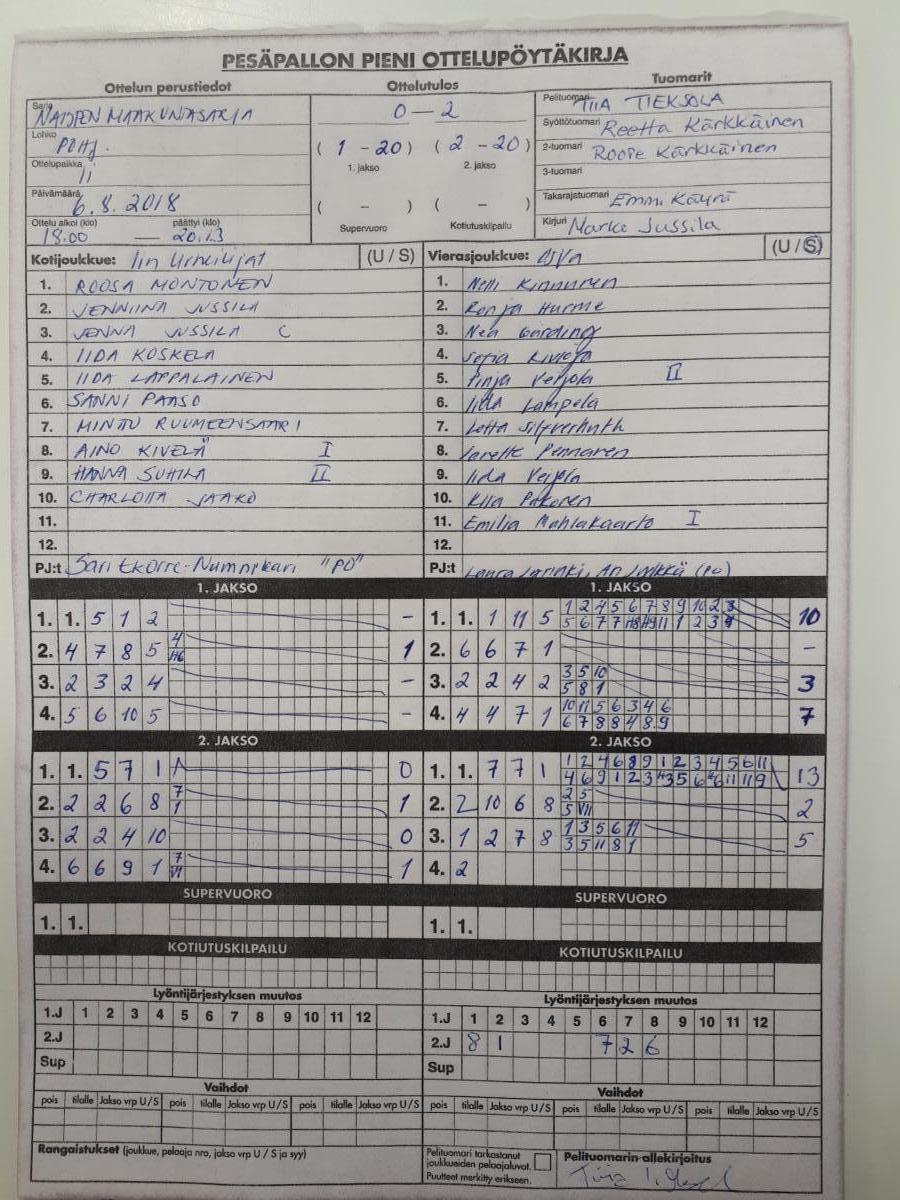 PESÄPALLON PIENI OTTELUPÖYTÄKIRJA
Ottelun perustiedot
Ottelutulos
Tuomarit
Sarja NAISTEN MAAKUNTASARJA
Lohko POHJ.
Ottelupaikka Ii
Päivämäärä 6.8.2018
Ottelu alkoi (klo) päättyi (klo)
18.00 — 20.13
0 – 2
( 1 – 20 ) ( 2 – 20 )
1. jakso 2. jakso
( – ) ( – )
Supervuoro Kotiutuskilpailu
Pelituomari TIIA TIEKSOLA
Syöttötuomari Reetta Kärkkäinen
2-tuomari Roope Kärkkäinen
3-tuomari
Takarajatuomari Emmi Käyrä
Kirjuri Marko Jussila
Kotijoukkue: Iin Urheilijat (U / S)
1. ROOSA MONTONEN
2. JENNIINA JUSSILA
3. JENNA JUSSILA C
4. IIDA KOSKELA
5. IIDA LAPPALAINEN
6. SANNI PAASO
7. MINTU RUUMEENSAARI
8. AINO KIVELÄ I
9. HANNA SUHILA II
10. CHARLOTTA JAAKO
11.
12.
PJ:t Sari Ekorre-Nummikari "PO"
Vierasjoukkue: (U / S)
1. Nelli Kinnunen
2. Ronja Hurme
3. Nea Gärding
4. Sofia
5. Pinja Veijola II
6. Iida Lampela
7. Lotta
8. Pennanen
9. Iida Veijola
10. Kiia Pakonen
11. Emilia Mahlakaarto I
12.
PJ:t Laura (PO)
1. JAKSO
1. 1. 5 1 2 –
2. 4 7 8 5 4 H6 1
3. 2 3 2 4 –
4. 5 6 10 5 –
1. JAKSO
1. 1. 1 11 5 1 2 4 5 6 7 8 9 10 2 3 10
2. 6 6 7 1 –
3. 2 2 4 2 3 5 10 3
5 8 1
4. 4 4 7 1 10 11 5 6 3 4 6 7
6 7 8 8 4 8 9
2. JAKSO
1. 1. 5 7 1 0
2. 2 2 6 8 7 1 1
3. 2 2 4 10 0
4. 6 6 9 1 7 VI 1
2. JAKSO
1. 1. 7 7 1 1 2 4 6 8 9 1 2 3 4 5 6 11 13
2. 2 10 6 8 2 5 2
5 VII
3. 1 2 7 8 1 3 5 6 11 5
3 5 11 8 1
4. 2
SUPERVUORO
1. 1.
SUPERVUORO
1. 1.
KOTIUTUSKILPAILU
KOTIUTUSKILPAILU
Lyöntijärjestyksen muutos
1.J 1 2 3 4 5 6 7 8 9 10 11 12
2.J
Sup
Lyöntijärjestyksen muutos
1.J 1 2 3 4 5 6 7 8 9 10 11 12
2.J 8 1 7 2 6
Sup
Vaihdot
pois tilalle Jakso vrp U/S pois tilalle Jakso vrp U/S pois tilalle Jakso vrp U/S
Vaihdot
pois tilalle Jakso vrp U/S pois tilalle Jakso vrp U/S pois tilalle Jakso vrp U/S
Rangaistukset (joukkue, pelaaja nro, jakso vrp U / S ja syy)
Pelituomari tarkastanut
joukkueiden pelaajaluvat.
Puutteet merkitty erikseen.
Pelituomarin allekirjoitus